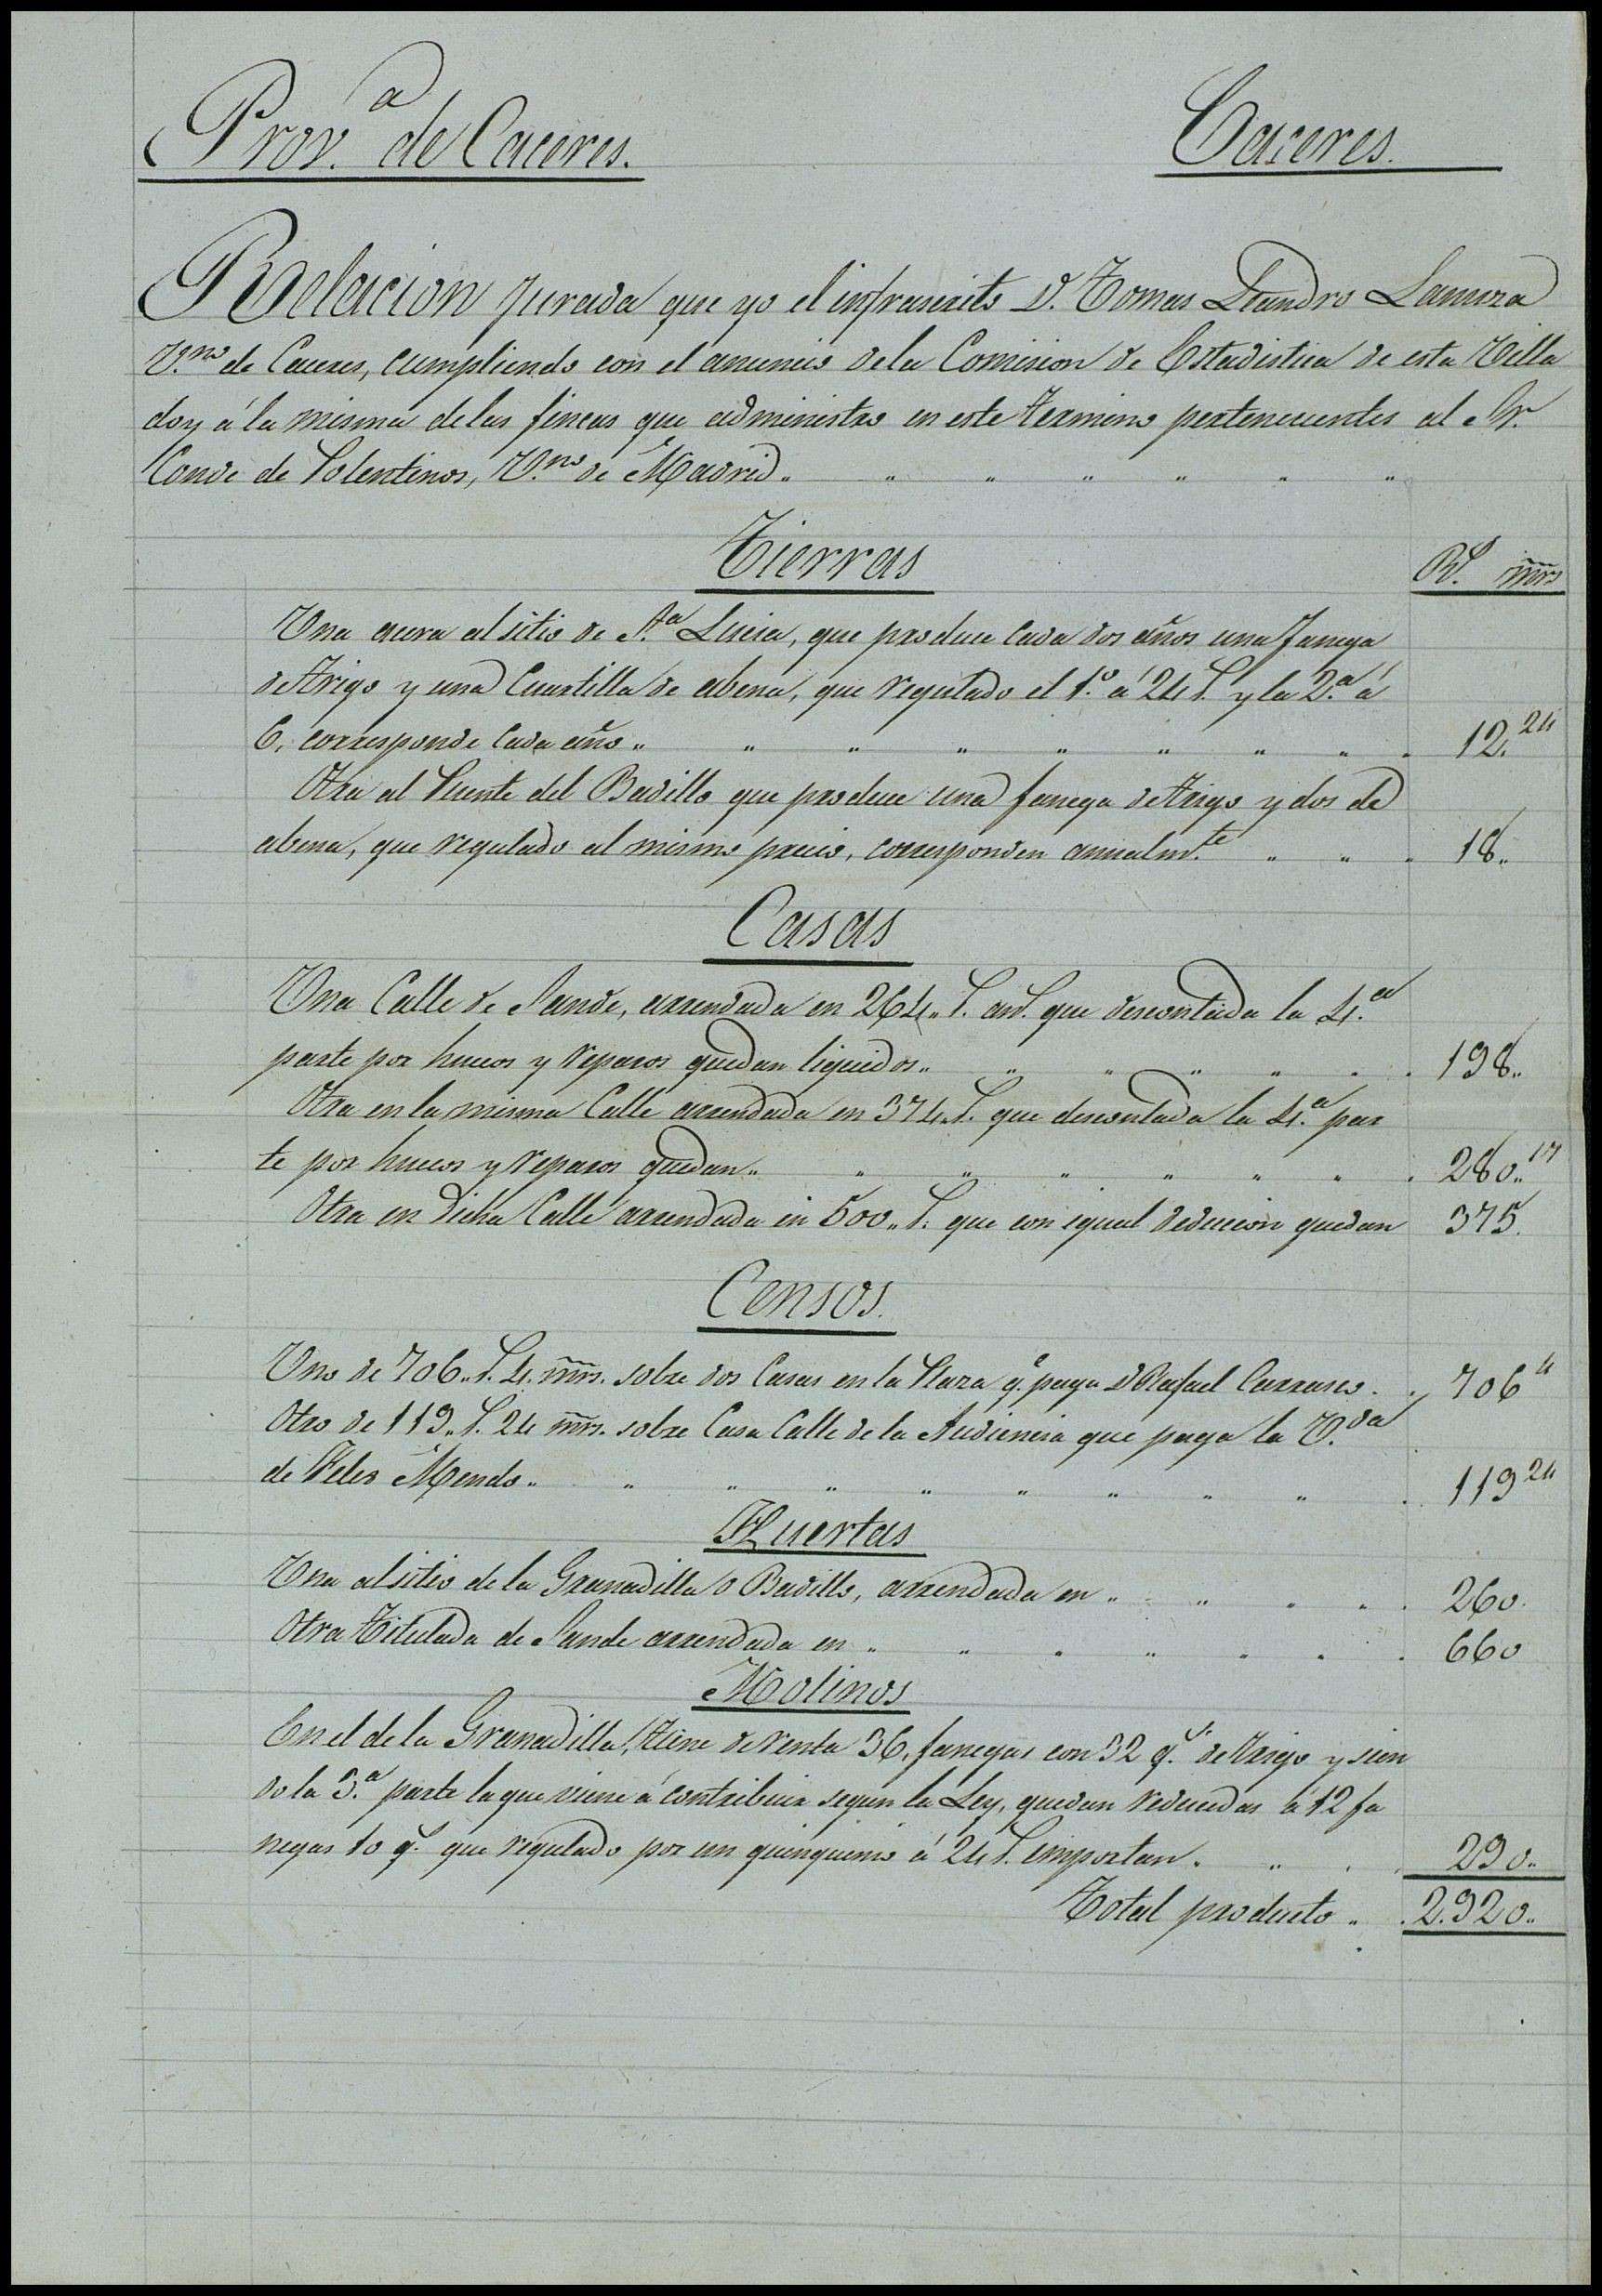 Prov.ª de Caceres.
Caceres.
Relacion jurada que yo el infrascrito D. Tomas Leandro Lamoza
V.no de Caceres, cumpliendo con el anuncio dela Comision de Estadistica de esta Villa
doy á la misma delas fincas que administro en este termino pertenecientes al Sr.
Conde de Polentinos, V.no de Madrid " " " " " " "
Tierras
Rs. mrs
Una acera al sitio de S.ta Lucia, que produce cada dos años una fanega
de trigo y una cuartilla de abena, que regulado el 1.º á 24 rs. y la 2.ª á
6, corresponde cada año " " " " " " " " 12.24
Otra al Puente del Badillo que produce una fanega de trigo y dos de
abena, que regulado al mismo precio, corresponden anualm.te " " " 18"
Casas
Una Calle de Sande, arrendada en 264" rs. an.s que descontada la 4.ª
parte por huecos y reparos quedan liquidos " " " " " 198"
Otra en la misma Calle arrendada en 374" rs. que descontada la 4.ª par
te por huecos y reparos quedan " " " " " " " 280"17
Otra en dicha Calle arrendada en 500" rs. que con igual deduccion quedan 375.
Censos.
Uno de 706" rs. 4 mrs. sobre dos Casas en la Plaza q.e paga D Rafael Carrasco . 706 4
Otro de 119" rs. 24 mrs. sobre Casa Calle de la Audiencia que paga la V.da
de Feles Mendo " " " " " " " " " 119 24
Huertas
Una al sitio de la Granadilla o Badillo, arrendada en " " " " 260.
Otra titulada de Sande arrendada en " " " " " " 660
Molinos
En el de la Granadilla, tiene de renta 36, fanegas con 32 q.s de trigo y sien
do la 3.ª parte la que viene á contribuir segun la Ley, quedan reducidas á 12 fa
negas 10 q.s que regulado por un quinquenio á 24 rs. importan . " " 290"
Total producto " 2.920"